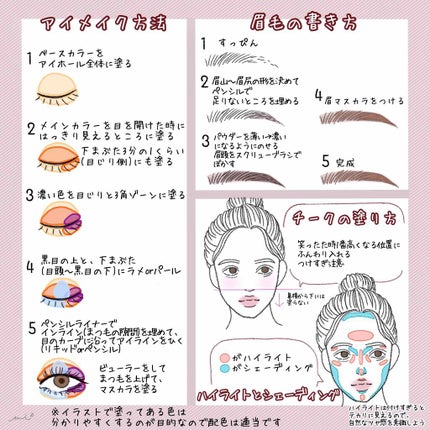 アイメイク方法
1 ベースカラーを
アイホール全体に塗る
2 メインカラーを目を開けた時に
はっきり見えるところに塗る
下まぶた3分の1くらい
(目じり側)にも塗る
3 濃い色を目じりと3角ゾーンに塗る
4 黒目の上と、下まぶた
(目頭〜黒目の下)にラメorパール
5 ペンシルライナーで
インライン(まつ毛の隙間)を埋めて、
目のカーブに沿ってアイラインをひく
(リキッドorペンシル)
ビューラーをして
まつ毛を上げて、
マスカラを塗る
眉毛の書き方
1 すっぴん
2 眉山〜眉尻の形を決めて
ペンシルで
足りないところを埋める
3 パウダーを薄い→濃い
になるようにのせる
眉頭をスクリューブラシで
ぼかす
4 眉マスカラをつける
5 完成
チークの塗り方
笑った時1番高くなる位置に
ふんわり入れる
つけすぎ注意
鼻横から下には
塗らない
がハイライト
がシェーディング
ハイライトとシェーディング
ハイライトは付けすぎると
テカリに見えるので、
自然なツヤ感を意識しよう
※イラストで塗ってある色は
分かりやすくするのが目的なので配色は適当です